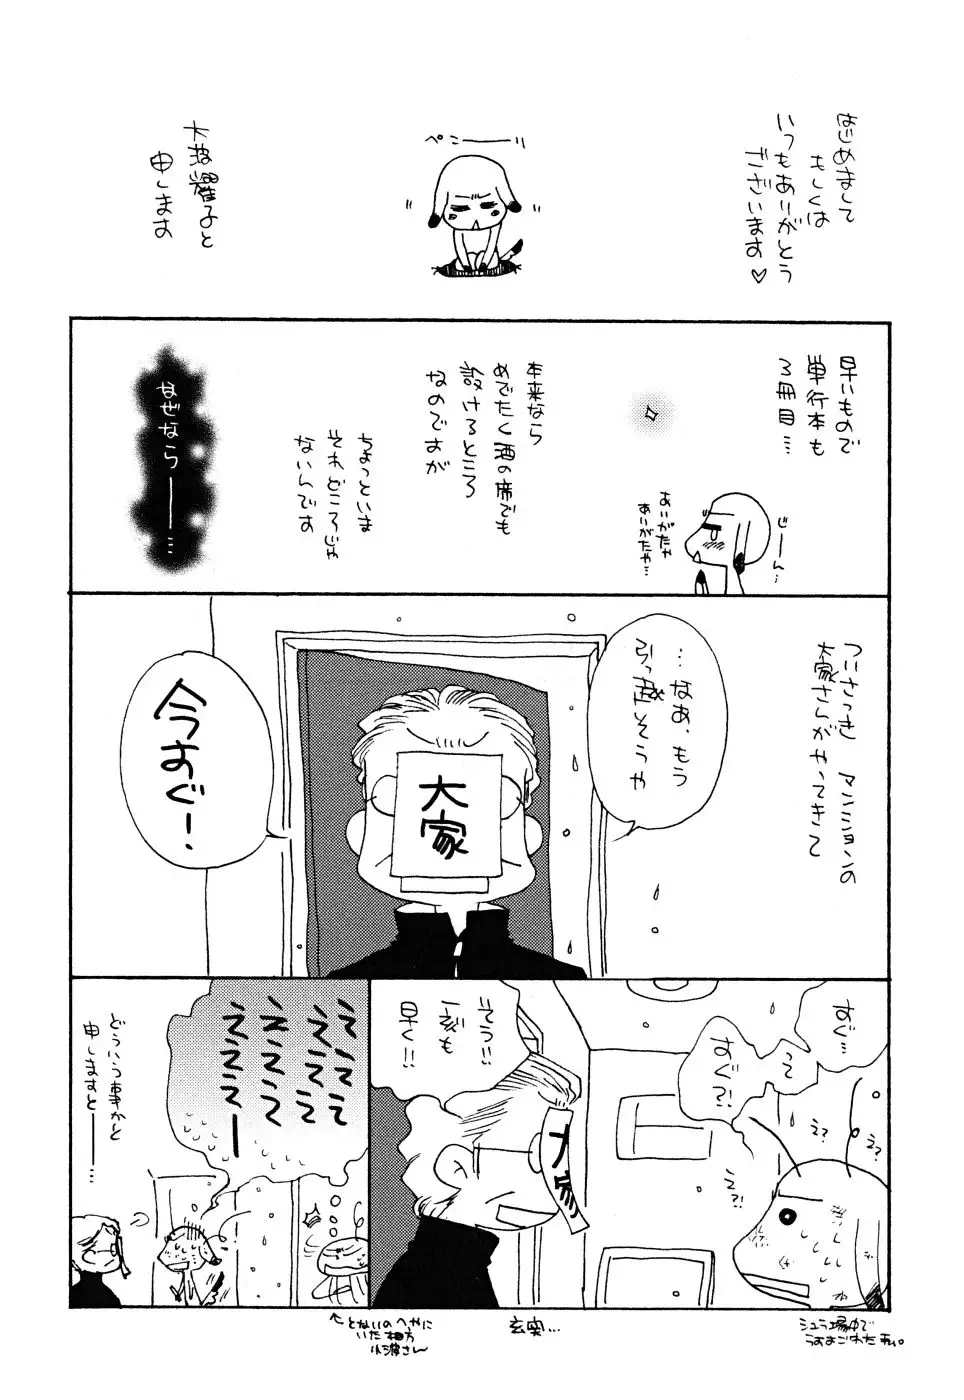 はじめまして
もしくは
いつもありがとう
ございます♡
ペこーーーり
大波耀子と
申します
早いもので
単行本も
3冊目…
じーん…
ありがたや
ありがたや…
本来なら
めでたく酒の席でも
設けるところ
なのですが
ちょっといま
それどころじゃ
ないんです
なぜなら———…
ついさっき マンションの
大家さんがやってきて
…なあ、もう
引っ越そうや
大家
今すぐ!
すぐ…
って
すぐ?!
え?
え?
え?!
シュラ場中で
うすよごれた私。
そう!!
一刻も
早く!!
大家
玄関…
ええええ
ええええ
ええええ
えええー
どういう事かと
申しますと———…
←となりのへやに
いた相方
小波さん